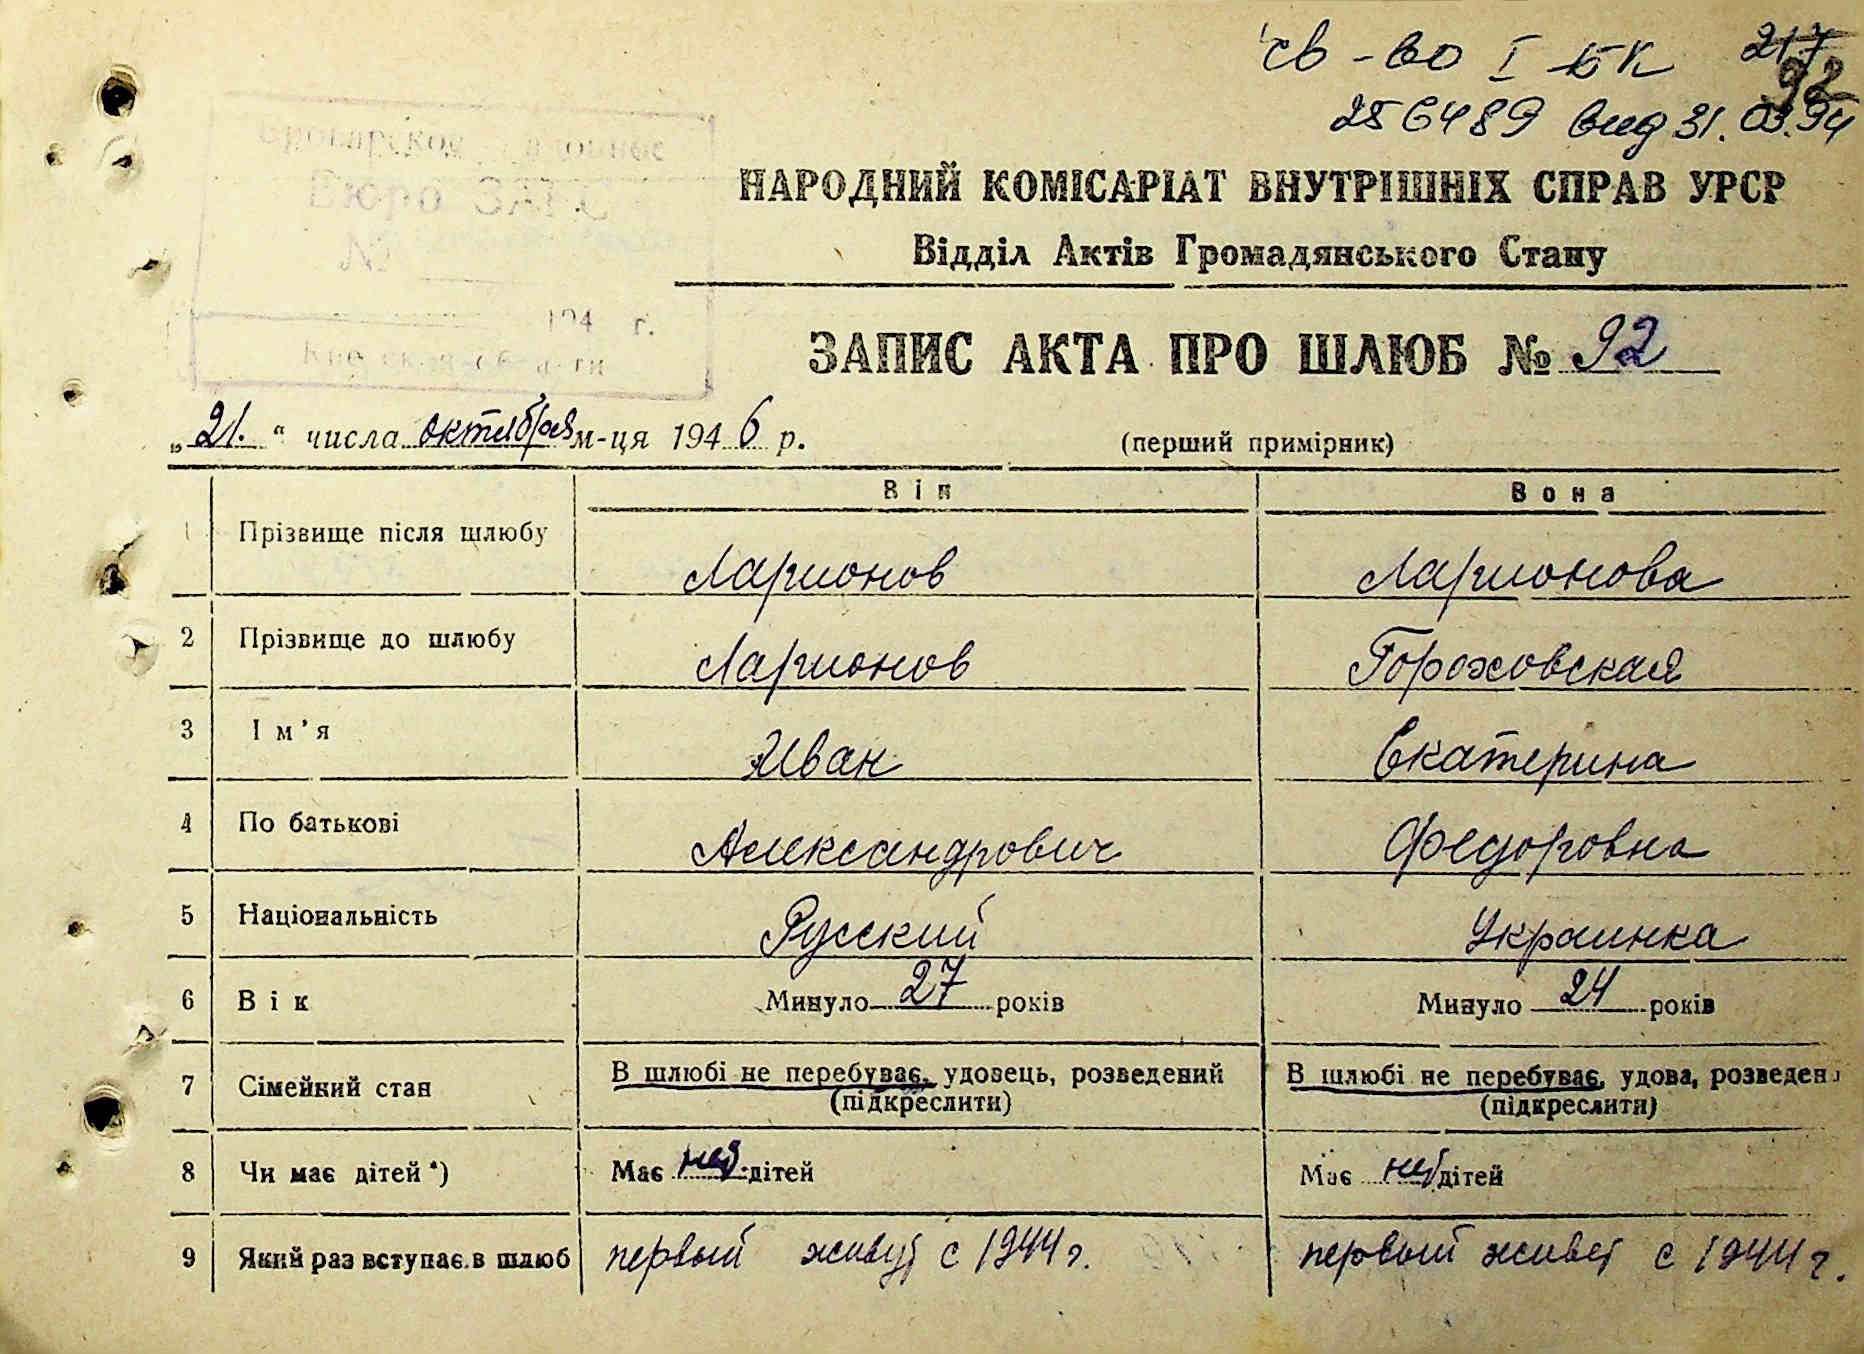 св-во I БК 217
92
256489 выд 31.03.94
Бюро ЗАГС
№
194 г.
НАРОДНИЙ КОМІСАРІАТ ВНУТРІШНІХ СПРАВ УРСР
Відділ Актів Громадянського Стану
ЗАПИС АКТА ПРО ШЛЮБ № 92
„21.“ числа октября м-ця 1946 р. (перший примірник)
Він Вона
1 Прізвище після шлюбу Ларионов Ларионова
2 Прізвище до шлюбу Ларионов Гороховская
3 Ім'я Иван Екатерина
4 По батькові Александрович Федоровна
5 Національність Русский Украинка
6 Вік Минуло 27 років Минуло 24 років
7 Сімейний стан В шлюбі не перебуває, удовець, розведений В шлюбі не перебуває, удова, розведен
(підкреслити) (підкреслити)
8 Чи має дітей *) Має нет дітей Має нет дітей
9 Який раз вступає в шлюб первый живут с 1944 г. первый живет с 1944 г.